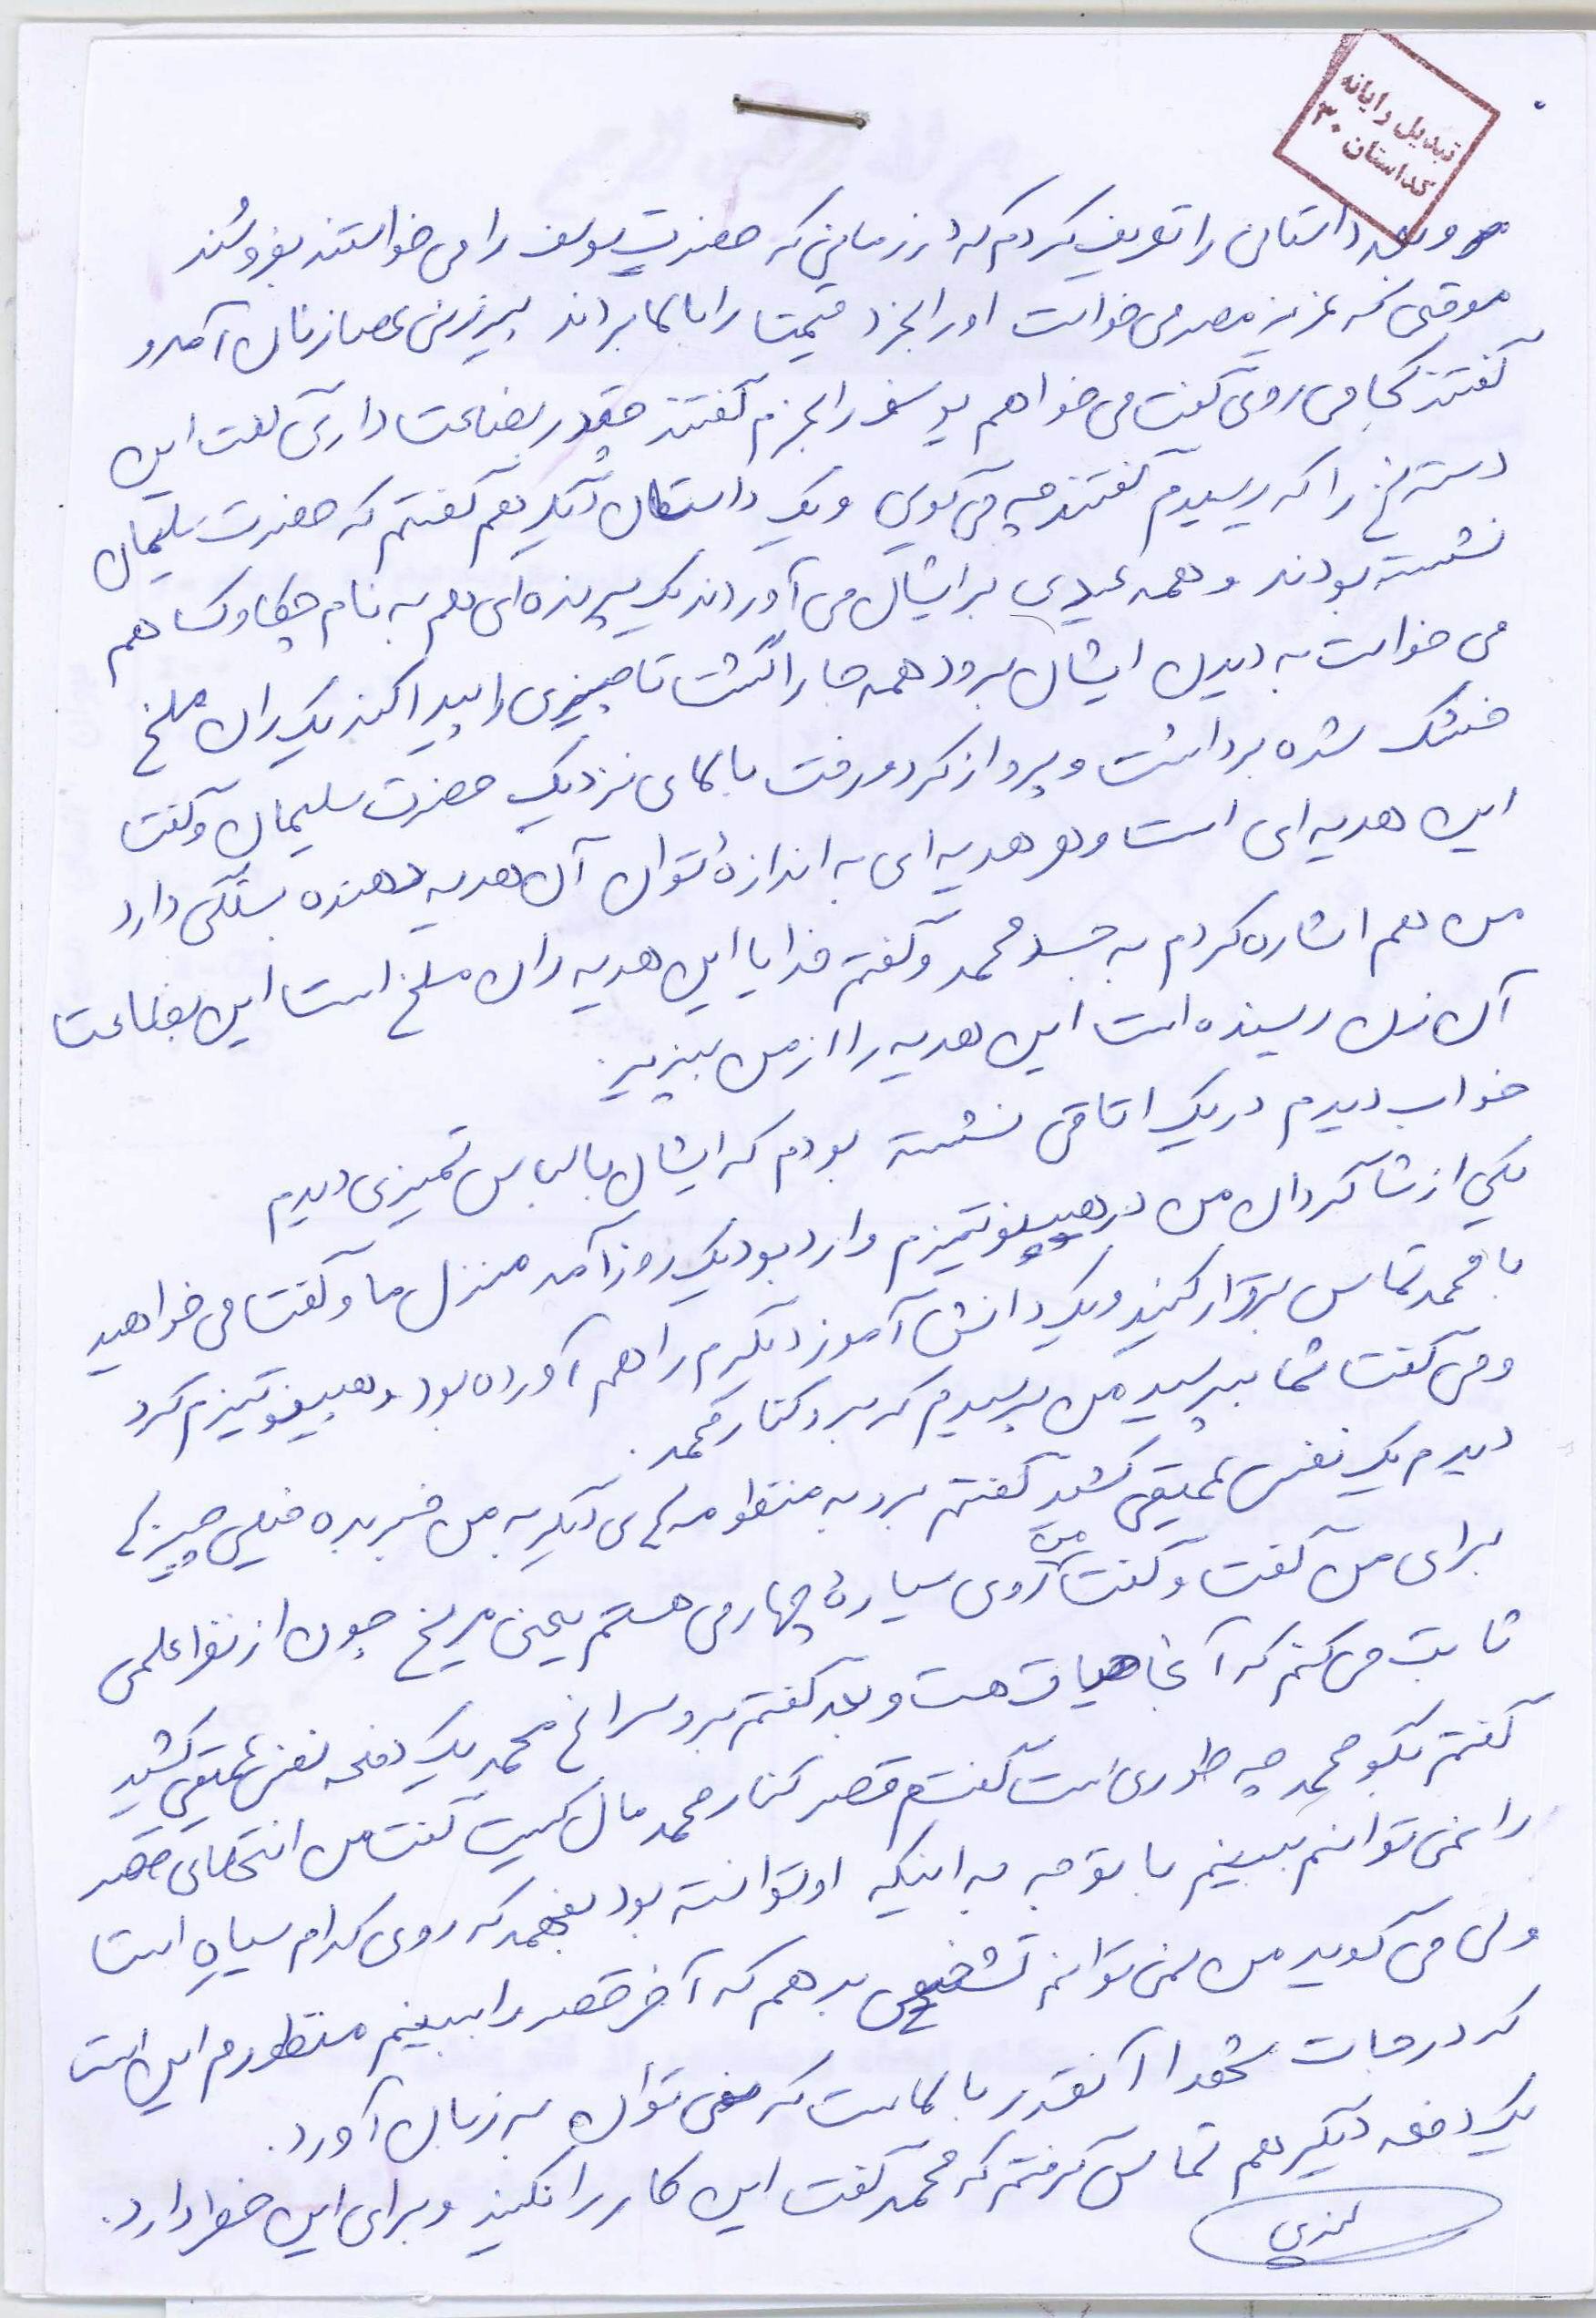 تبدیل رایانه
کداستان ۳۰
و بعد داستان را تعریف کردم که در زمانی که حضرت یوسف را می خواستند بفروشند
موقعی که عزیز مصر می خواست او را بخرد قیمت را بالا بردند پیرزنی عصا زنان آمد و
گفتند کجا می روی گفت می خواهم یوسف را بخرم گفتند چقدر بضاعت داری گفت این
دسته نخ را که ریسیدم گفتند چه می گویی و یک داستان دیگر هم گفتم که حضرت سلیمان
نشسته بودند و همه عیدی برایشان می آوردند یک پرنده ای هم به نام چکاوک هم
می خواست به دیدن ایشان برود همه جا را گشت تا چیزی را پیدا کند یک ران ملخ
خشک شده برداشت و پرواز کرد و رفت بالای نزدیک حضرت سلیمان و گفت
این هدیه ای است و هر هدیه ای به اندازهٔ توان آن هدیه دهنده بستگی دارد
من هم اشاره کردم به جسد محمد و گفتم خدایا این هدیه ران ملخ است این بضاعت
آن زن ریسنده است این هدیه را از من بپذیر.
خواب دیدم در یک اتاقی نشسته بودم که ایشان با لباس تمیزی دیدم
یکی از شاگردان من در هیپنوتیزم وارد بود یک روز آمد منزل ما و گفت می خواهید
با محمد تماس برقرار کنید و یک دانش آموز دیگرم را هم آورده بود و هیپنوتیزم کرد
و می گفت شما بپرسید من پرسیدم که برو کنار محمد.
دیدم یک نفس عمیقی کشید گفتم برو به منظومه های دیگر به من خبر بده خیلی چیزها
برای من گفت و گفت من روی سیارهٔ چهارمی هستم یعنی مریخ چون از نظر علمی
ثابت می کنم که آنجا حیات هست و بعد گفتم برو سراغ محمد یک دفعه نفس عمیقی کشید
گفتم بگو محمد چه طوری است گفتم قصر کنار محمد مال کیست گفت من انتهای قصر
را نمی توانم ببینم با توجه به اینکه او توانسته بود بفهمد که روی کدام سیاره است
ولی می گوید من نمی توانم تشخیص بدهم که آخر قصر را ببینم منظورم این است
که درجات شهدا آنقدر بالاست که نمی توان به زبان آورد.
یک دفعه دیگر هم تماس گرفتم که محمد گفت این کار را نکنید و برای این خطر دارد.